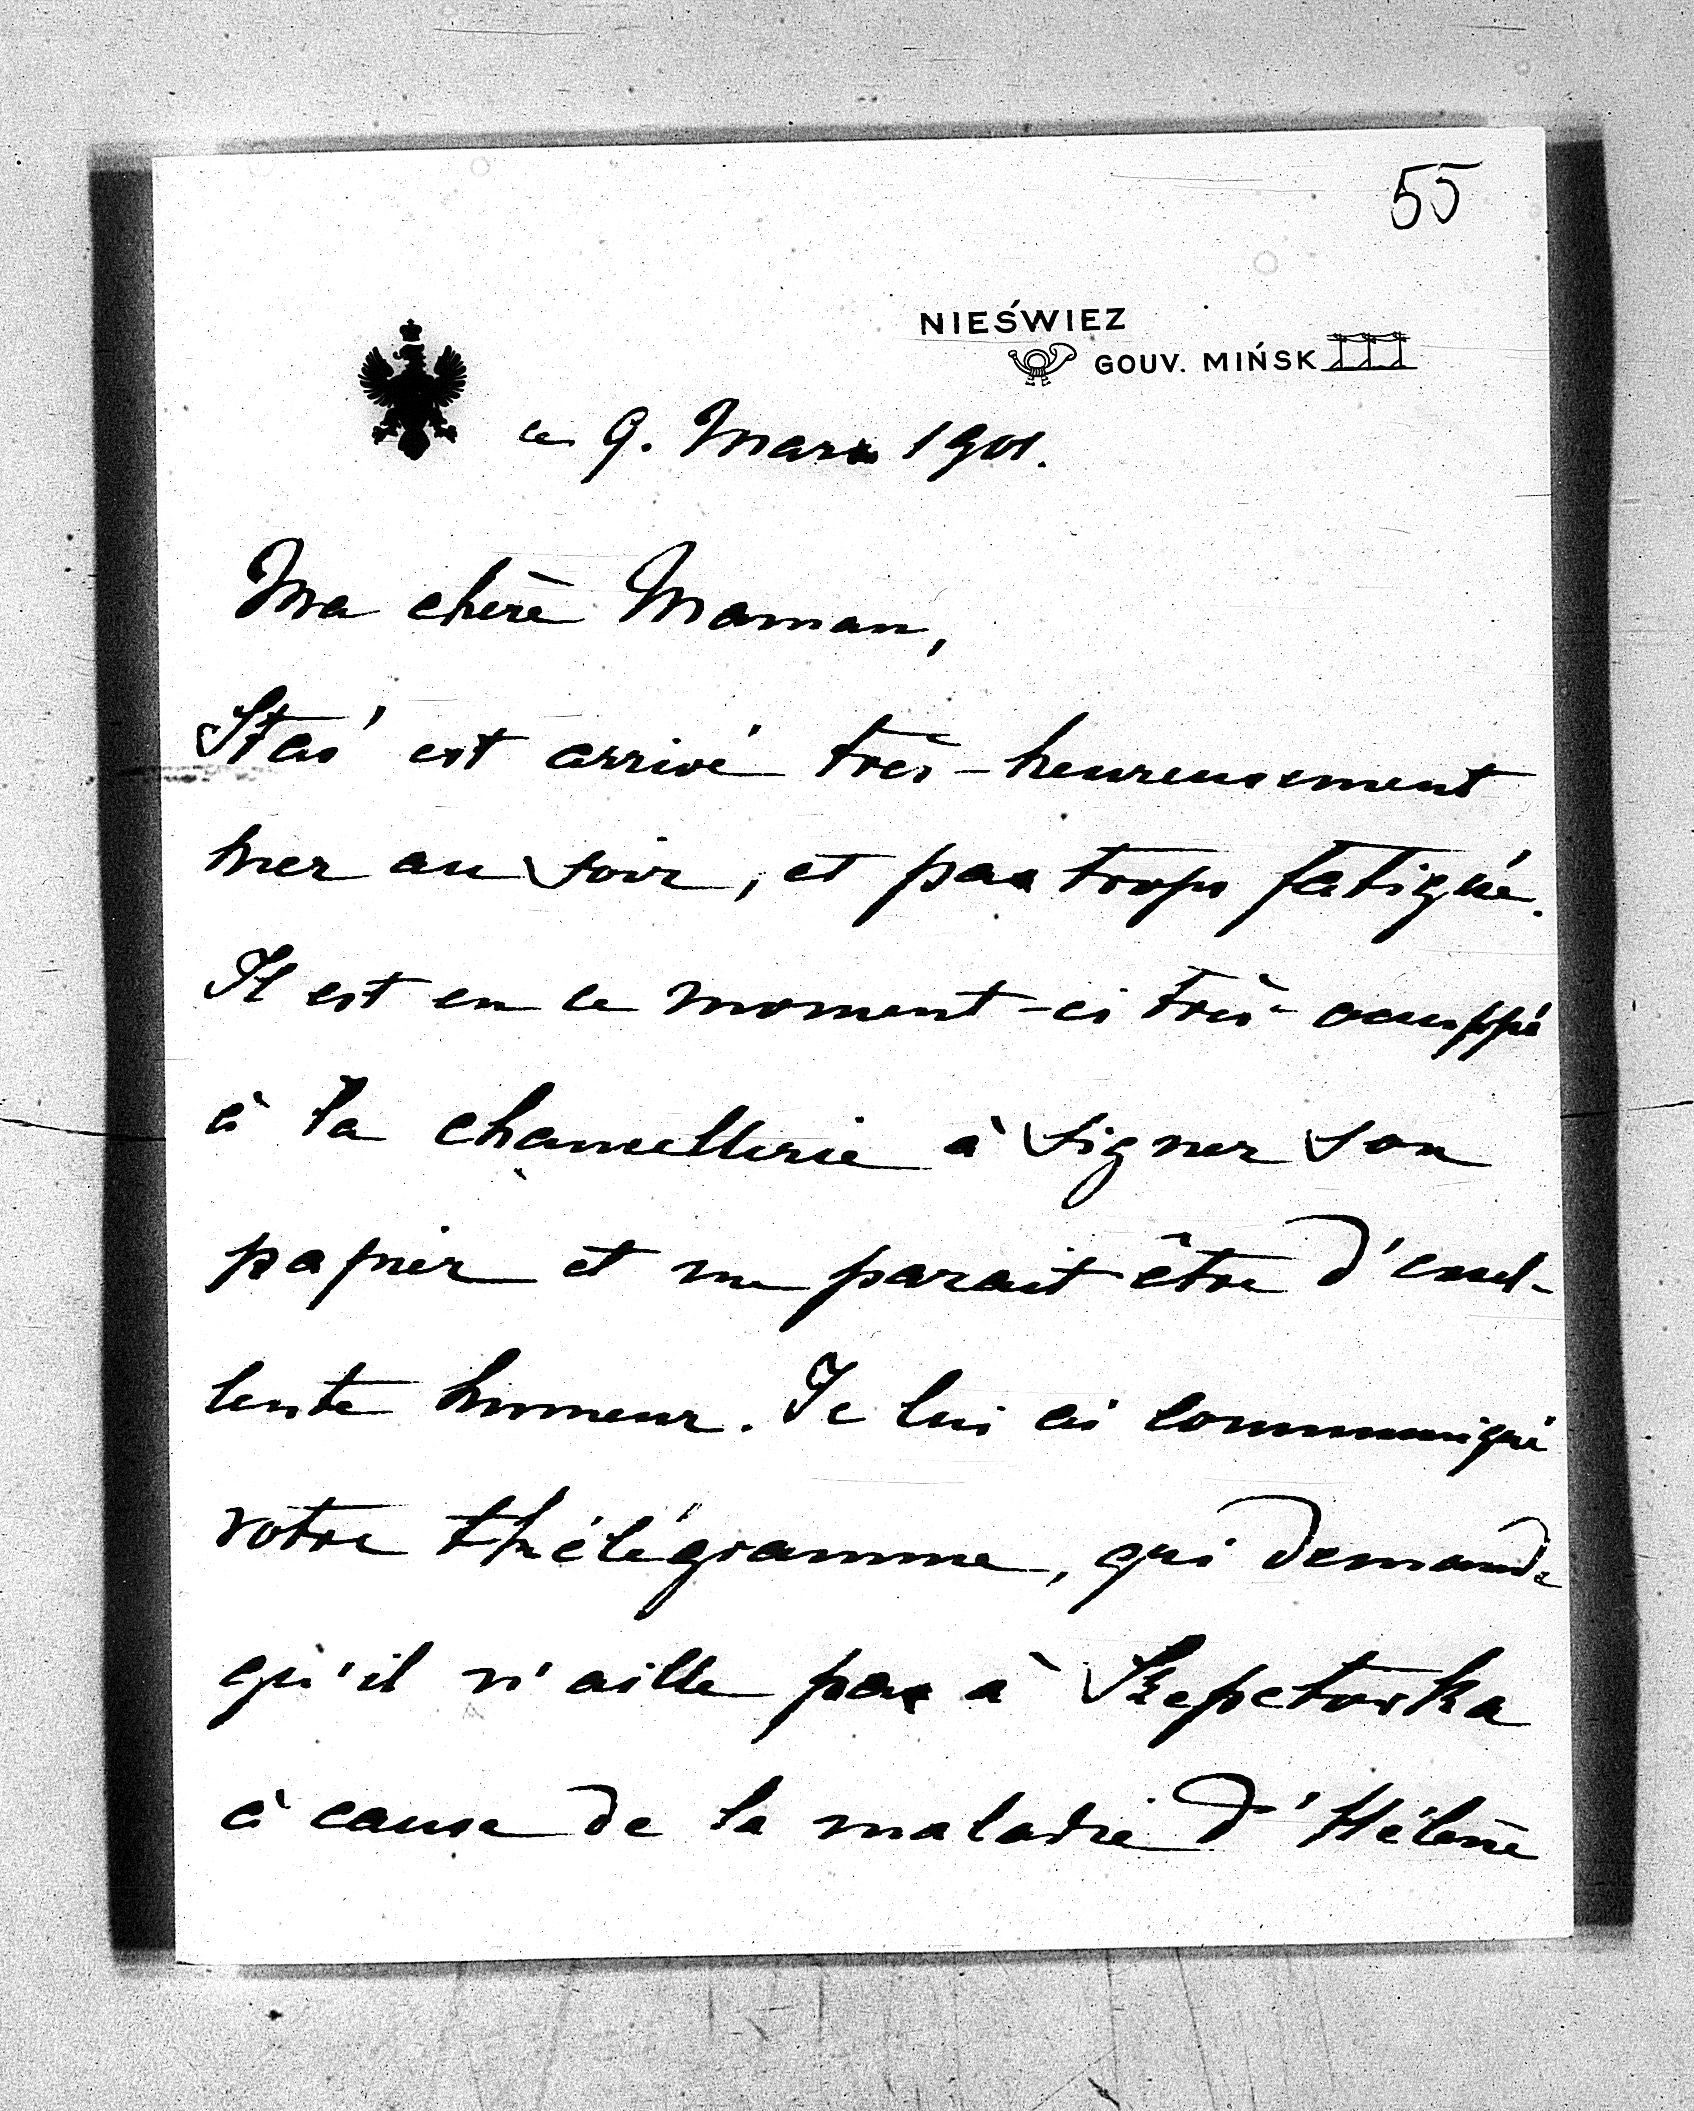 55
NIEŚWIEZ
GOUV. MIŃSK
le 9. Mars 1901.
Ma chère Maman,
Staś est arrivé très-heureusement
hier au soir, et pas trop fatigué.
Il est en ce moment-ci très occuppé
à la chancellerie à signer son
papier et me parait être d'excel-
lente humeur. Je lui ai communiqué
votre thélégramme, qui demande
qu'il n'aille pas à Szepetowka
à cause de la maladie d'Hélène